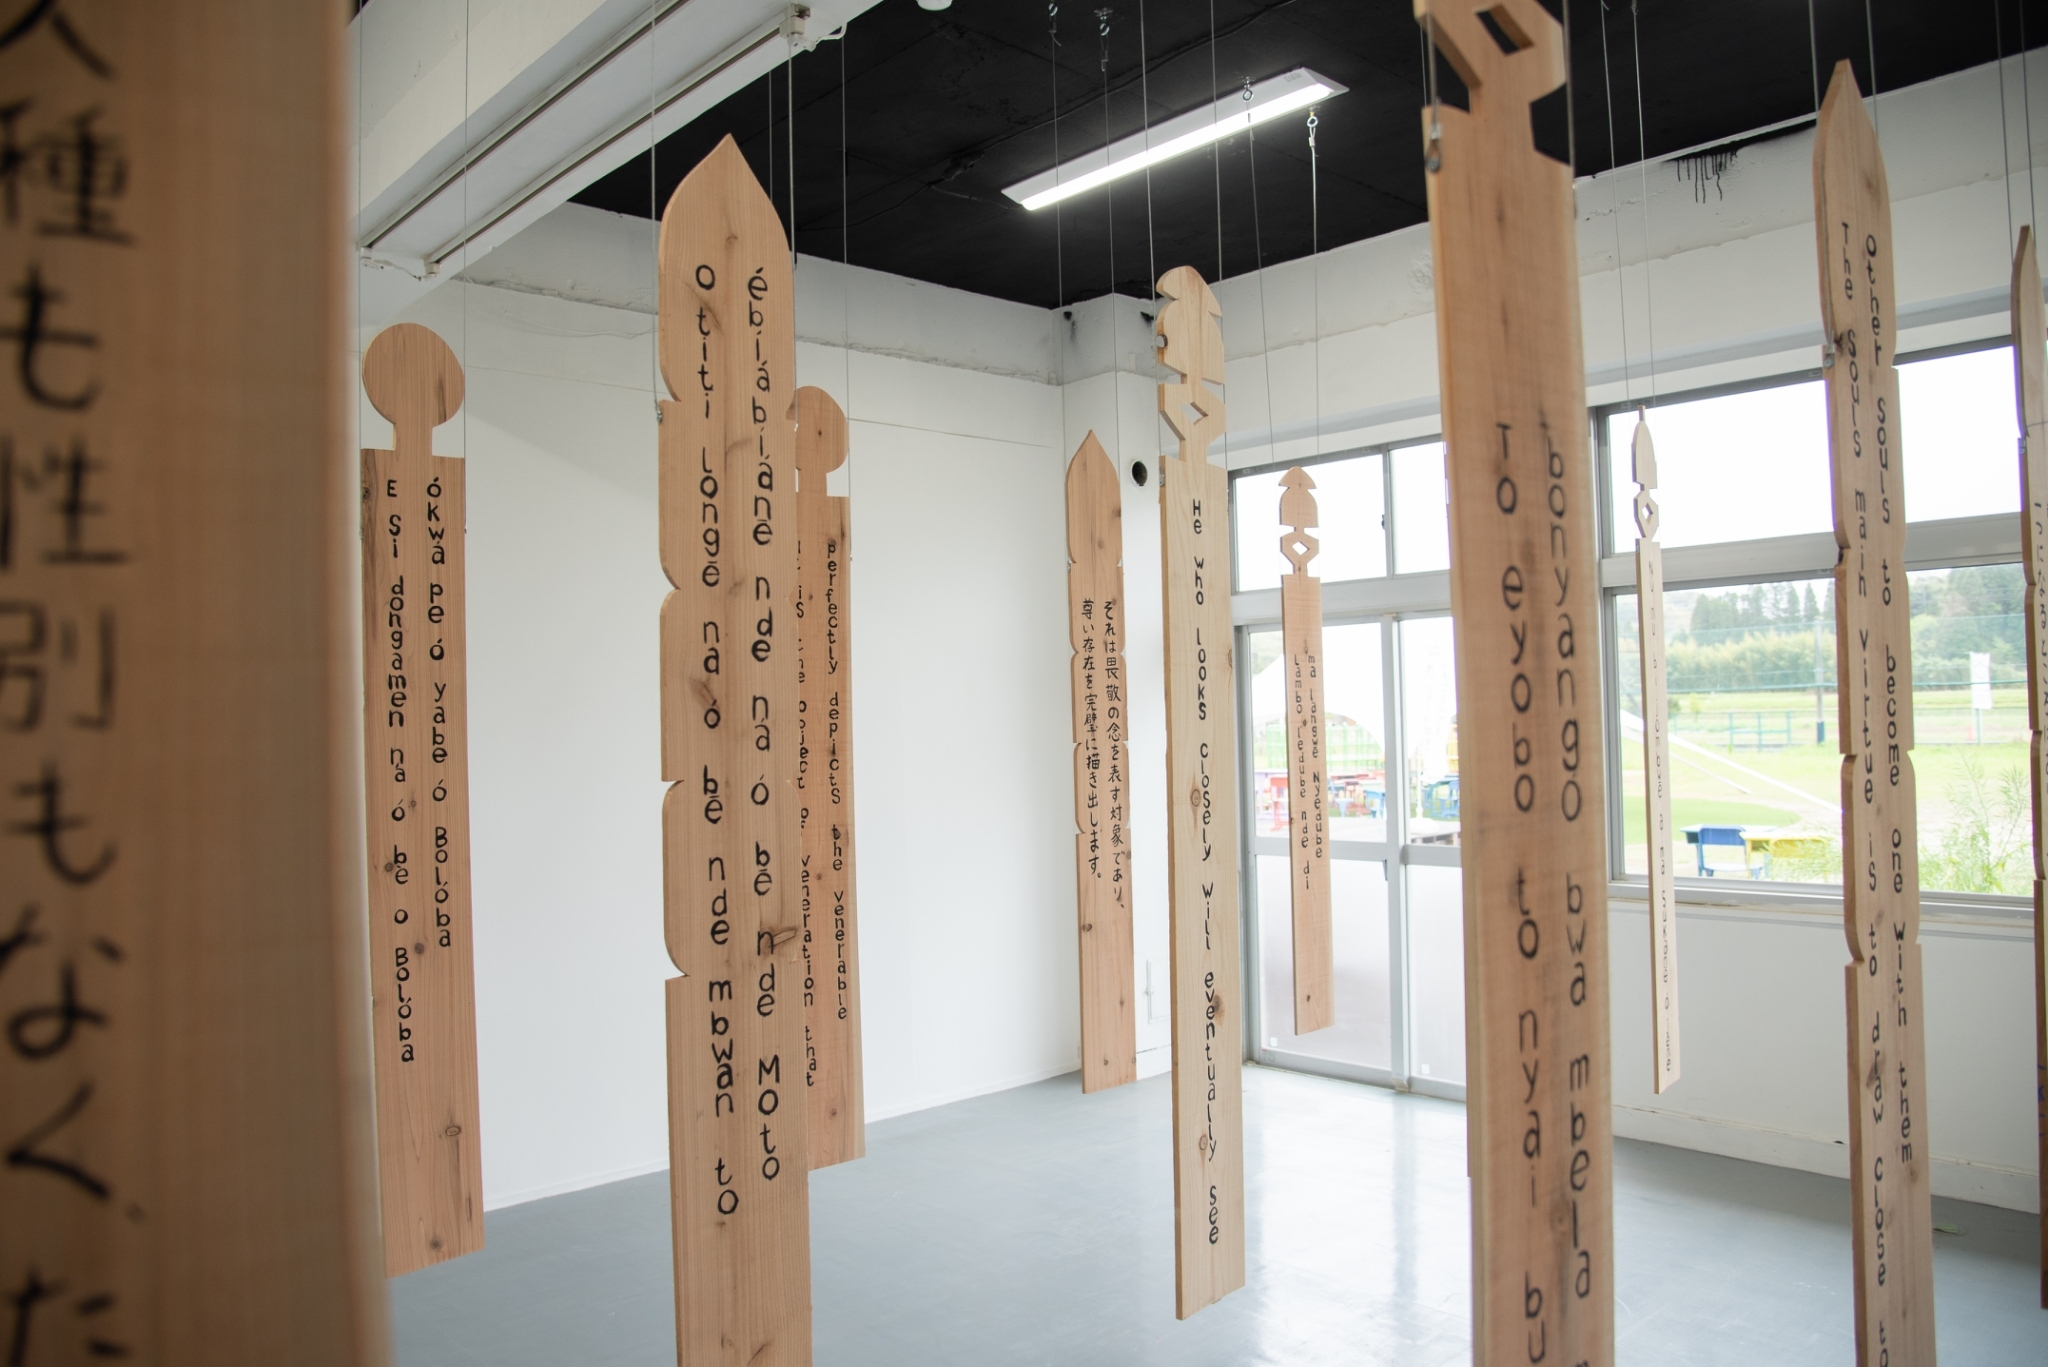 人種も性別もなくた
ókwá pe ó yabe ó Bolóba
E si dongamen na ó bè o Bolóba
ébíábíánē nde na ó bē nde Moto
o titi longē na ó bē nde mbwan to
perfectly depicts the venerable
is the object of veneration that
それは畏敬の念を表す対象であり、
尊い存在を完璧に描き出します。
He who looks closely will eventually see
ma langwe Nyedube
Lambo ledube nde di
bonyango bwa mbela
To eyobo to nyai bu
Other souls to become one with them
The souls main virtue is to draw close t